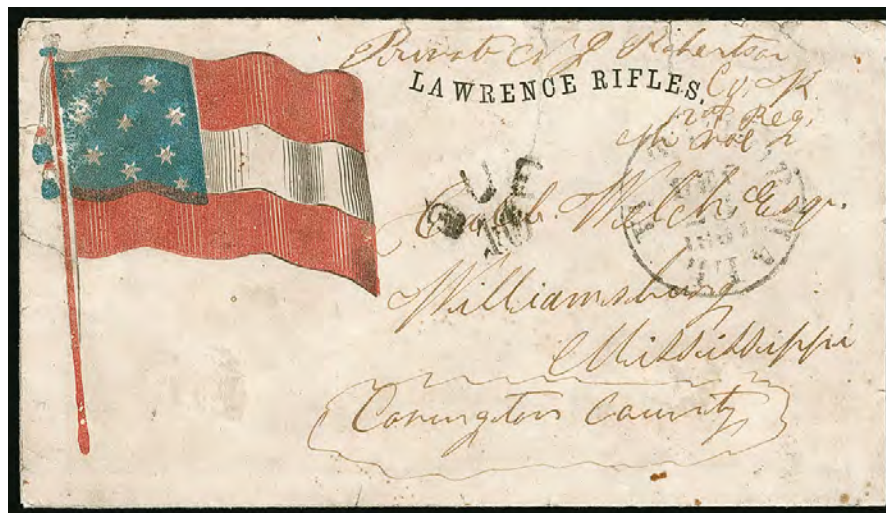 Private N J Robertson
LAWRENCE RIFLES.
Co. K
12th Reg.
Mi Vol
DUE
10
Welch, Esqr.
Williamsburg
Mississippi
Covington County